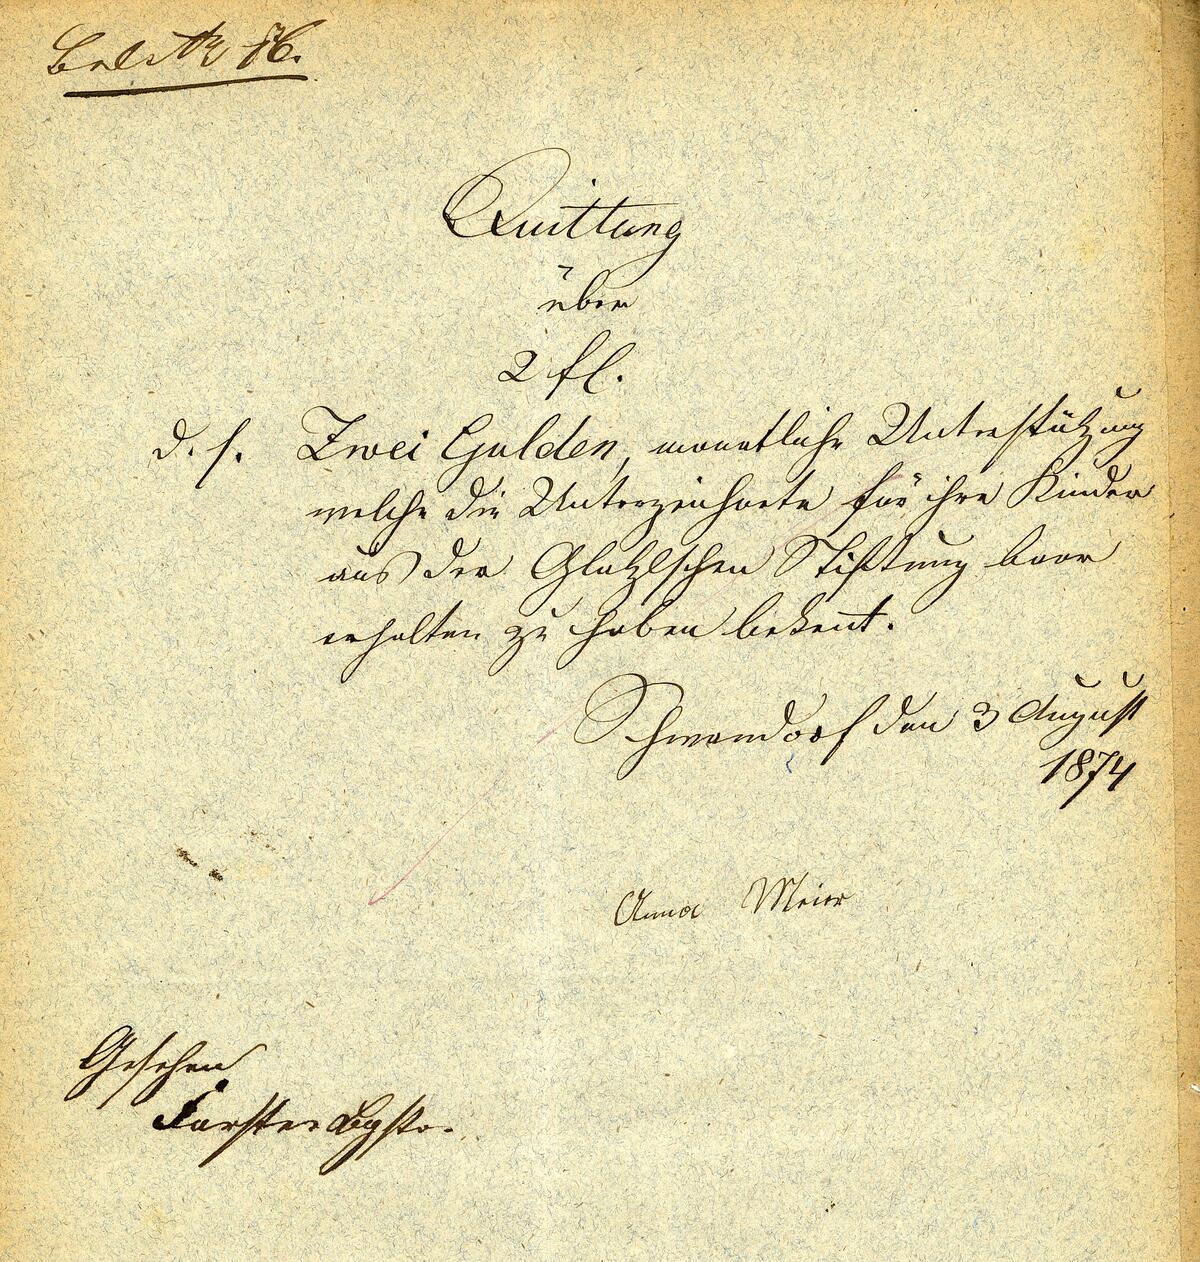 Quittung
über
2 fl.
d. s. Zwei Gulden, monatliche Unterstützung
welche die Unterzeichnete für ihre Kinder
aus der Glatzlschen Stiftung baar
erhalten zu haben bekent.
Schwandorf den 3 August
1874
Anna Meier
Gesehen